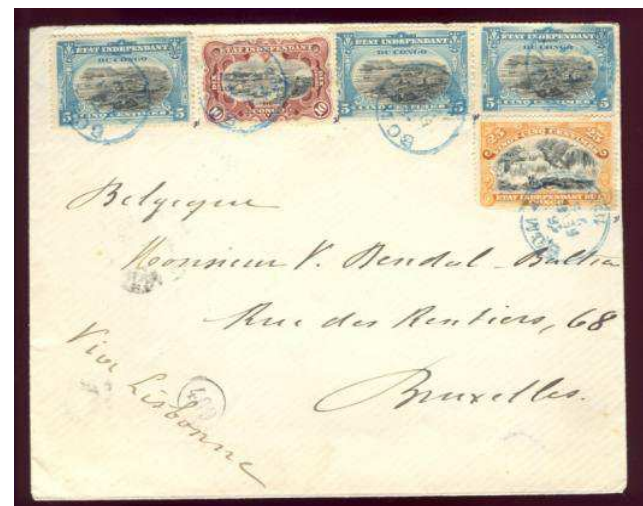 ETAT INDEPENDANT
DU CONGO
5 CINQ CENTIMES 5
ETAT INDEPENDANT
10 CONGO 10
ETAT INDEPENDANT
DU CONGO
5 CINQ CENTIMES 5
ETAT INDEPENDANT
DU CONGO
5 CINQ CENTIMES 5
25 VINGT-CINQ CENTIMES 25
ETAT INDEPENDANT DU
Belgique
Monsieur V.
Rue des Rentiers, 68
Bruxelles.
Via Lisbonne